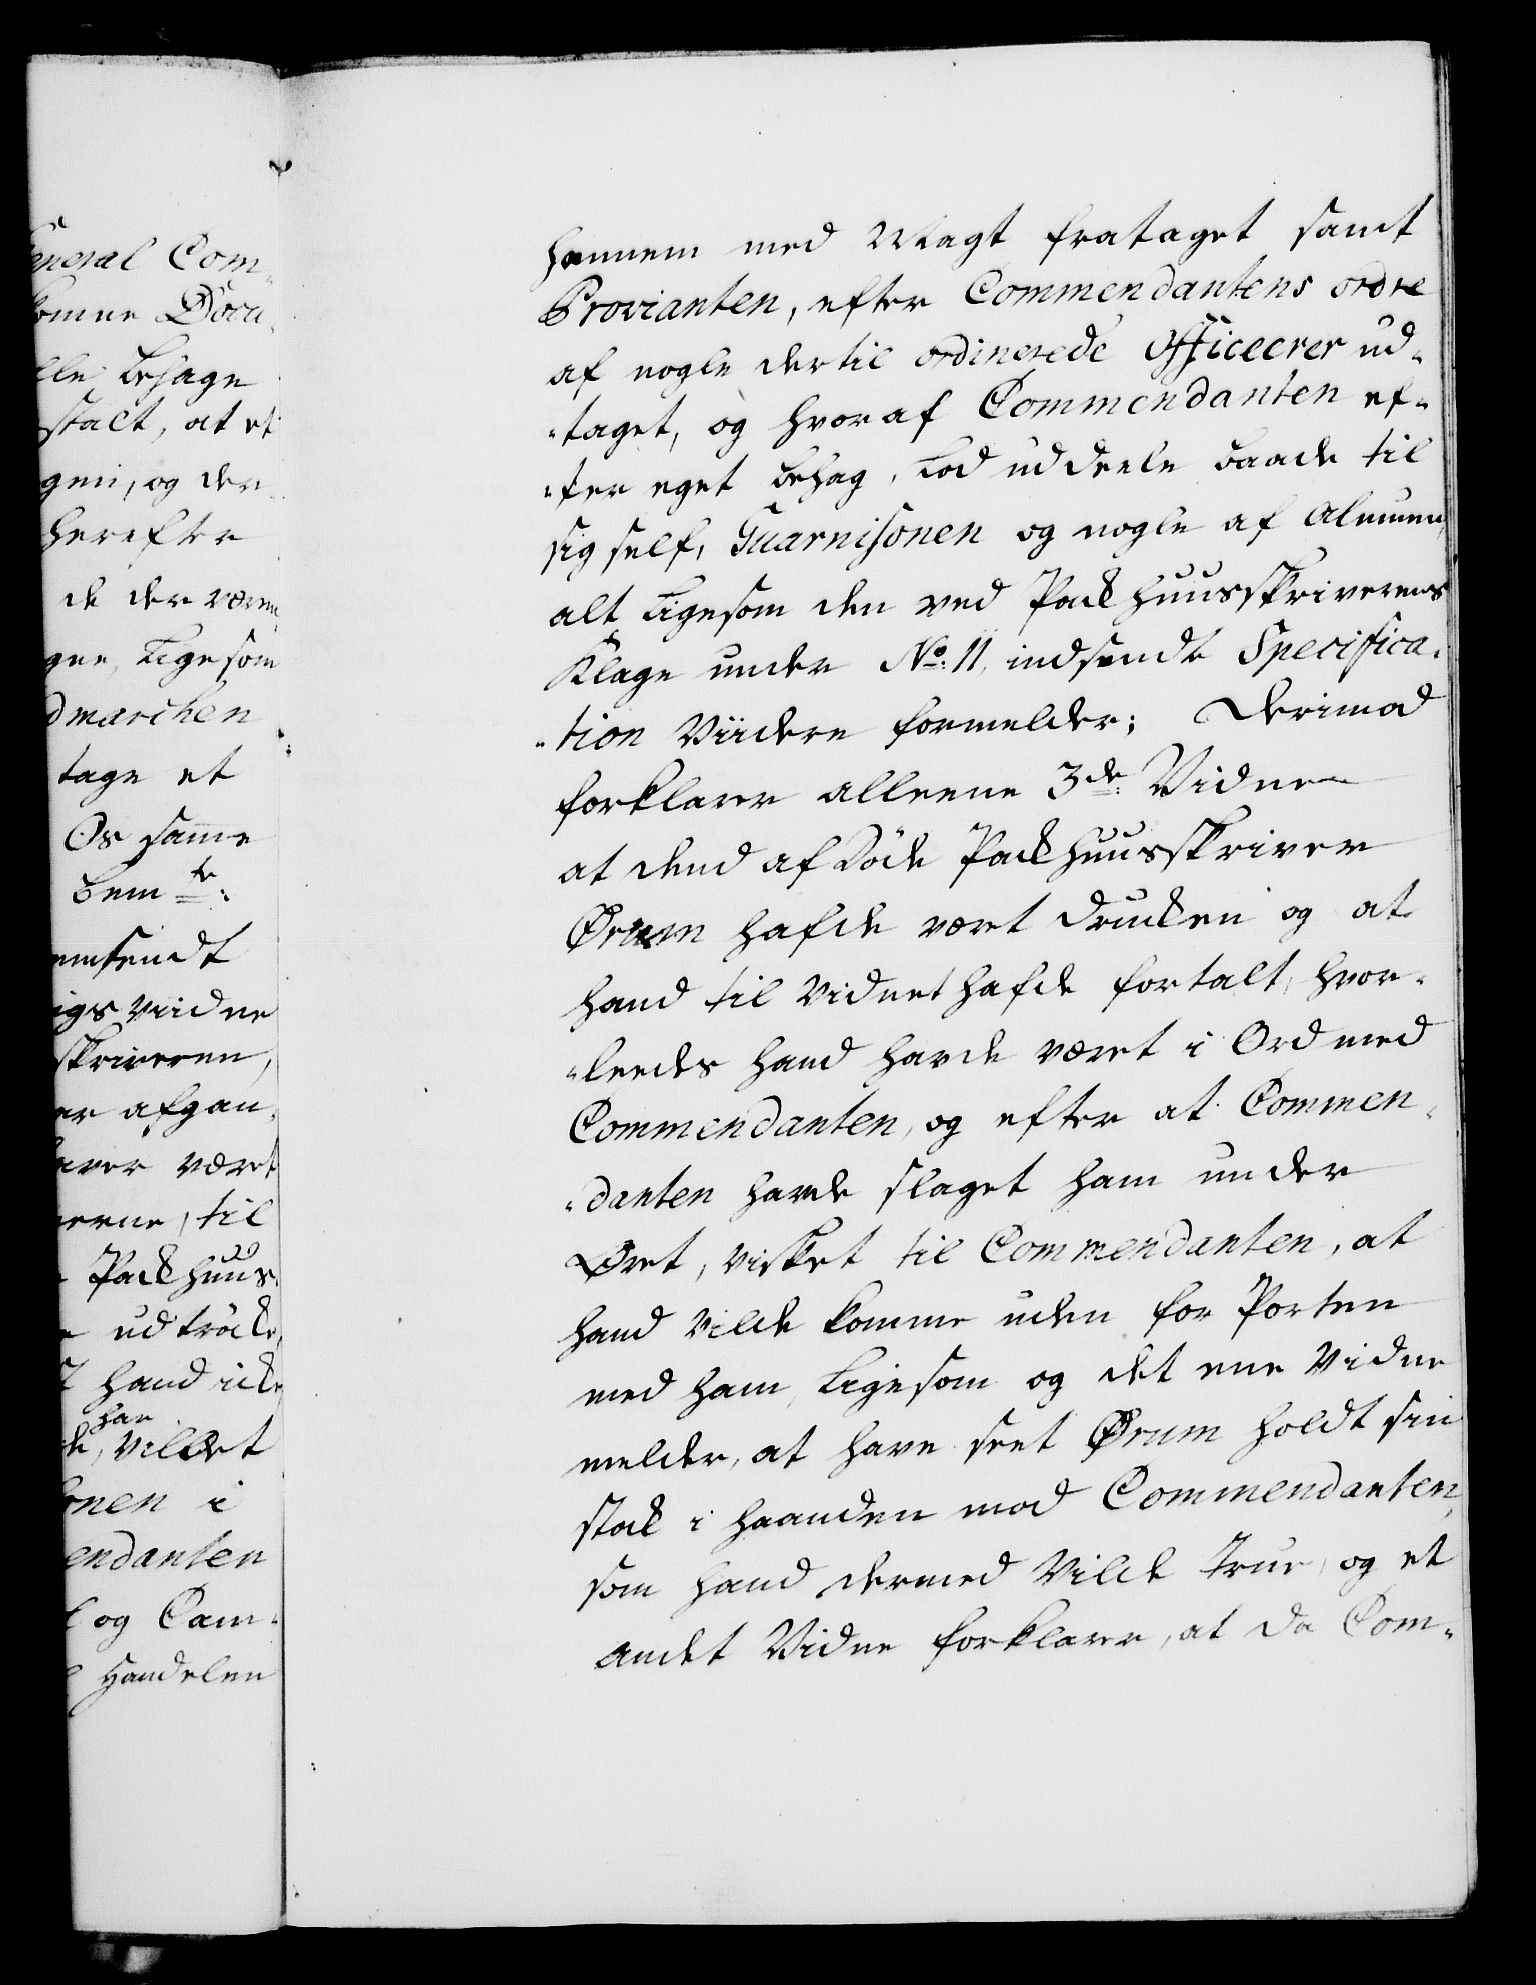 eneral Com-
komne Docu-
lle behage
stalt, at et
gen, og der
herefter
de der være
gne, Ligesom
dmarchen
tage et
Os samme
bem.te:
emsendt
igs viidne
skriveren,
er afgan-
aver været
erne, til
Packhuus-
udtröcke,
hand icke
har
de, villet
onen i
endanten
og Cam-
Handelen
hannem med Magt frataget samt
Provianten, efter Commendantens ordre
af nogle dertil ordinerede Officeerer ud-
-taget, og hvoraf Commendanten ef-
-ter eget behag, Lod uddeele baade til
sig self, Guarnisonen og nogle af Almuen,
alt Ligesom den ved Packhuusskriverens
Klage under No: 11, indsendte Specifica-
-tion Viidere formelder; Derimod
forklarer alleene 3de: Vidner
at dend afdöde Packhuusskriver
Ørum hafde vært drucken og at
hand til Vidnet hafde fortalt, hvor-
-leedes hand havde været i Ord med
Commendanten, og efter at Commen-
-danten havde slaget ham under
Øret, visket til Commendanten, at
hand vilde komme uden for Porten
med ham, Ligesom og det ene Vidne
melder, at have seet Ørum holdt sin
stock i haanden mod Commendanten,
som hand dermed Vilde True, og et
andet Vidne forklarer, at da Com-